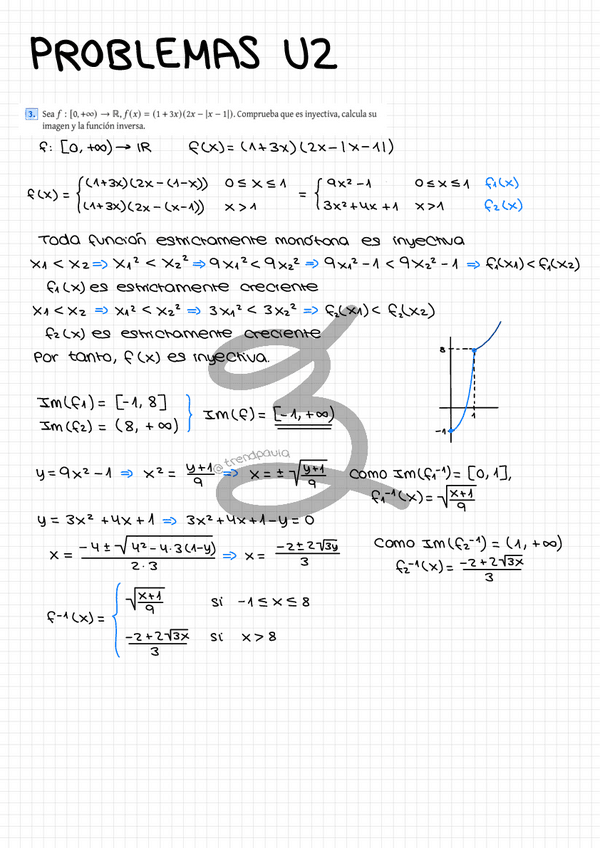 PROBLEMAS U2
3. Sea f : [0, +∞) → ℝ, f(x) = (1 + 3x)(2x − |x − 1|). Comprueba que es inyectiva, calcula su
imagen y la función inversa.
f: [0, +∞) → IR   f(x) = (1+3x)(2x-|x-1|)
f(x) = { (1+3x)(2x-(1-x))   0≤x≤1   = { 9x²-1   0≤x≤1   f₁(x)
(1+3x)(2x-(x-1))   x>1   3x²+4x+1   x>1   f₂(x)
Toda función estrictamente monótona es inyectiva
x₁ < x₂ ⇒ x₁² < x₂² ⇒ 9x₁² < 9x₂² ⇒ 9x₁²-1 < 9x₂²-1 ⇒ f₁(x₁) < f₁(x₂)
f₁(x) es estrictamente creciente
x₁ < x₂ ⇒ x₁² < x₂² ⇒ 3x₁² < 3x₂² ⇒ f₂(x₁) < f₂(x₂)
f₂(x) es estrictamente creciente
Por tanto, f(x) es inyectiva.
8
1
-1
Im(f₁) = [-1, 8]
Im(f₂) = (8, +∞) } Im(f) = [-1, +∞)
@trendpavia
y = 9x²-1 ⇒ x² = (y+1)/9 ⇒ x = ±√((y+1)/9)   Como Im(f₁⁻¹) = [0, 1],
f₁⁻¹(x) = √((x+1)/9)
y = 3x²+4x+1 ⇒ 3x²+4x+1-y = 0
x = (-4±√(4²-4·3(1-y)))/(2·3) ⇒ x = (-2±2√3y)/3   Como Im(f₂⁻¹) = (1, +∞)
f₂⁻¹(x) = (-2+2√3x)/3
f⁻¹(x) = { √((x+1)/9)   si   -1≤x≤8
(-2+2√3x)/3   si   x>8